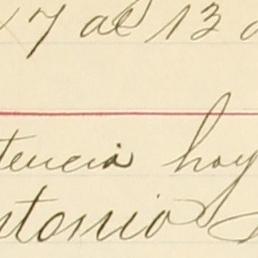 7 al 13
tencia hoy
ntonio